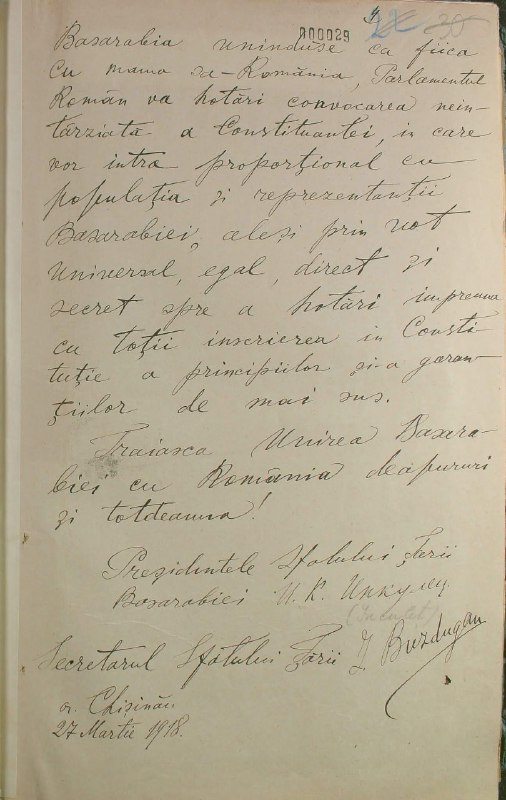 000029
30
Basarabia uninduse ca fiica
cu mama sa-România, Parlamentul
Român va hotări convocarea nein-
târziată a Constituantei, in care
vor intra proporţional cu
populaţia şi reprezentanţii
Basarabiei, aleşi prin vot
Universal, egal, direct şi
secret spre a hotări impreuna
cu toţii inscrierea in Consti-
tuţie a principiilor şi a garan-
ţiilor de mai sus.
Traiasca Unirea Basara-
biei cu România deapururi
şi totdeauna!
Preşidintele Sfatului Ţerii
Basarabiei И. К. Инкулец
(Inculet)
Secretarul Sfatului Ţării I Buzdugan
or. Chişinău
27 Martie 1918.